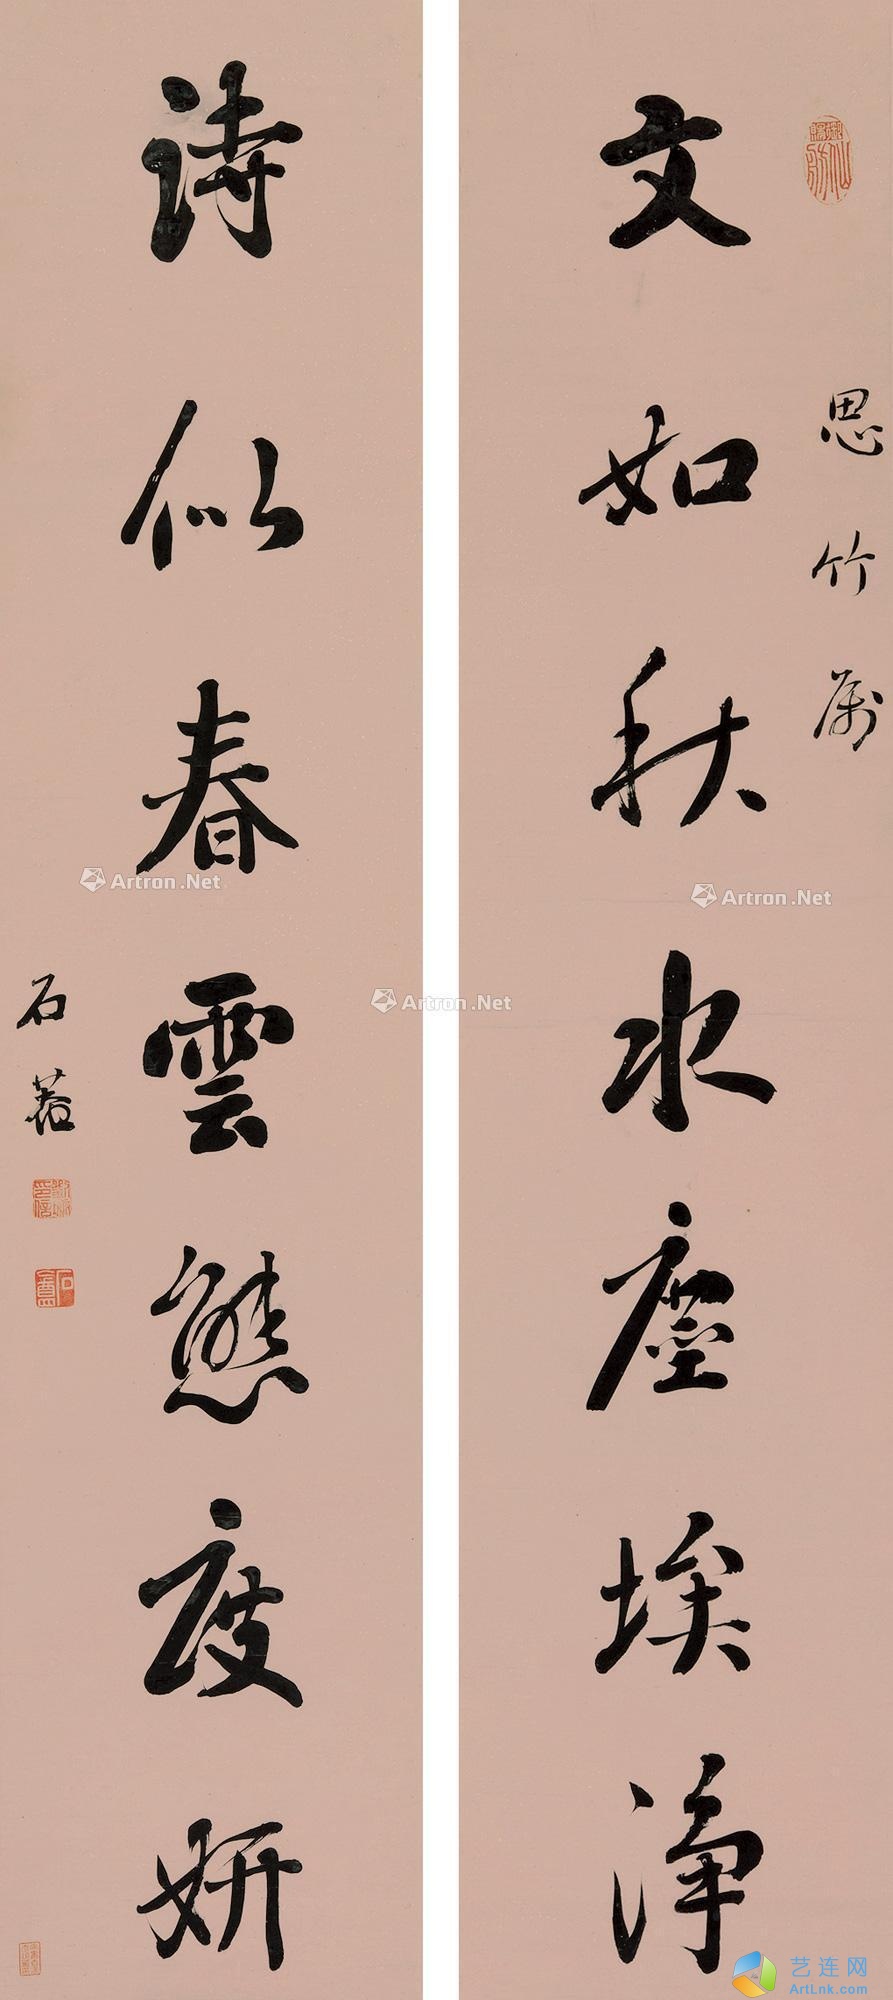 思竹屬
文如秋水塵埃淨
詩似春雲態度妍
石菴
Artron.Net
Artron.Net
Artron.Net
艺连网
ArtLnk.com